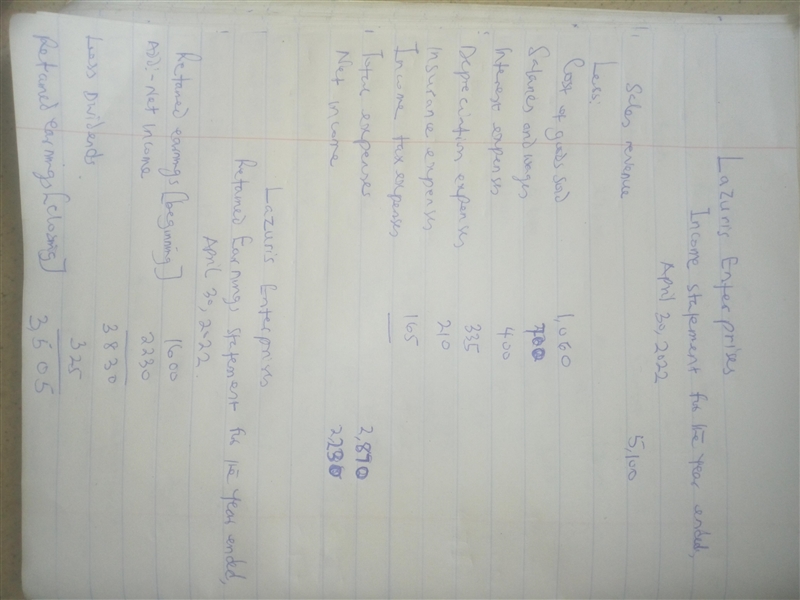 Lazuris Enterprises
Income statement for the year ended,
April 30, 2022
Sales revenue 5,100
Less:
Cost of goods sold 1,060
Salaries and wages 700
Interest expenses 400
Depreciation expenses 335
Insurance expenses 210
Income tax expenses 165
Total expenses 2,870
Net income 2,230
Lazuris Enterprises
Retained Earnings statement for the year ended,
April 30, 2022
Retained earnings [beginning] 1600
Add:- Net Income 2230
3830
Less Dividends 325
Retained earnings [closing] 3,505